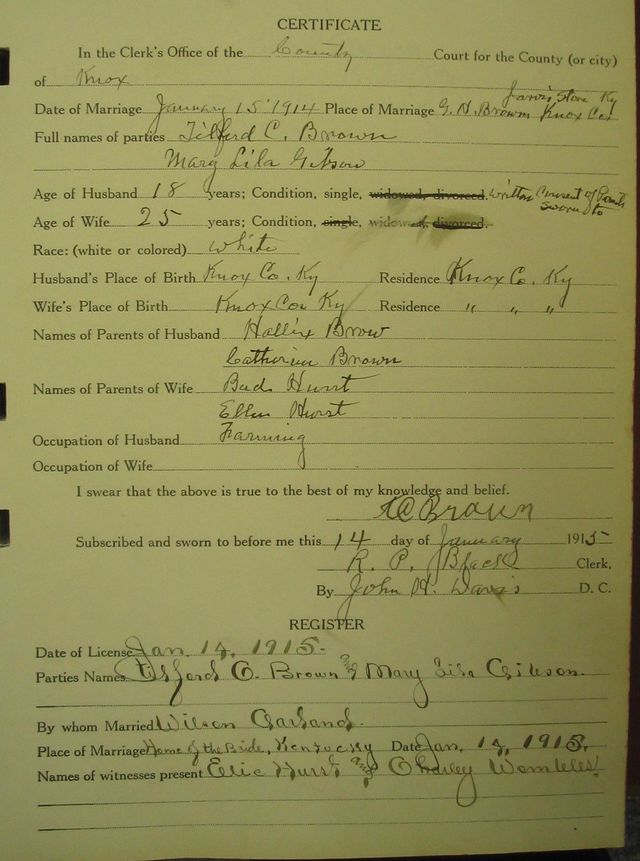 CERTIFICATE
In the Clerk's Office of the County Court for the County (or city)
of Knox
Jarvis Store Ky
Date of Marriage January 15 1914 Place of Marriage G. H. Brown Knox Co.
Full names of parties Tilford C. Brown
Mary Lila Gibson
Age of Husband 18 years; Condition, single, widowed, divorced. Written Consent of Parents
sworn to
Age of Wife 25 years; Condition, single, widowed, divorced.
Race: (white or colored) White
Husband's Place of Birth Knox Co. Ky Residence Knox Co. Ky
Wife's Place of Birth Knox Co Ky Residence " " "
Names of Parents of Husband Brow
Catherine Brown
Names of Parents of Wife Bud Hurst
Ellen Hurst
Occupation of Husband Farming
Occupation of Wife
I swear that the above is true to the best of my knowledge and belief.
TC Brown
Subscribed and sworn to before me this 14 day of January 1915
R. P. Black Clerk,
By John H. Davis D. C.
REGISTER
Date of License Jan. 14, 1915.
Parties Names Tilford C. Brown and Mary Lila Gibson.
By whom Married Wilson Garland.
Place of Marriage Home of the Bride, Kentucky Date Jan. 14, 1915.
Names of witnesses present Elic Hurst and Charley Wombles.